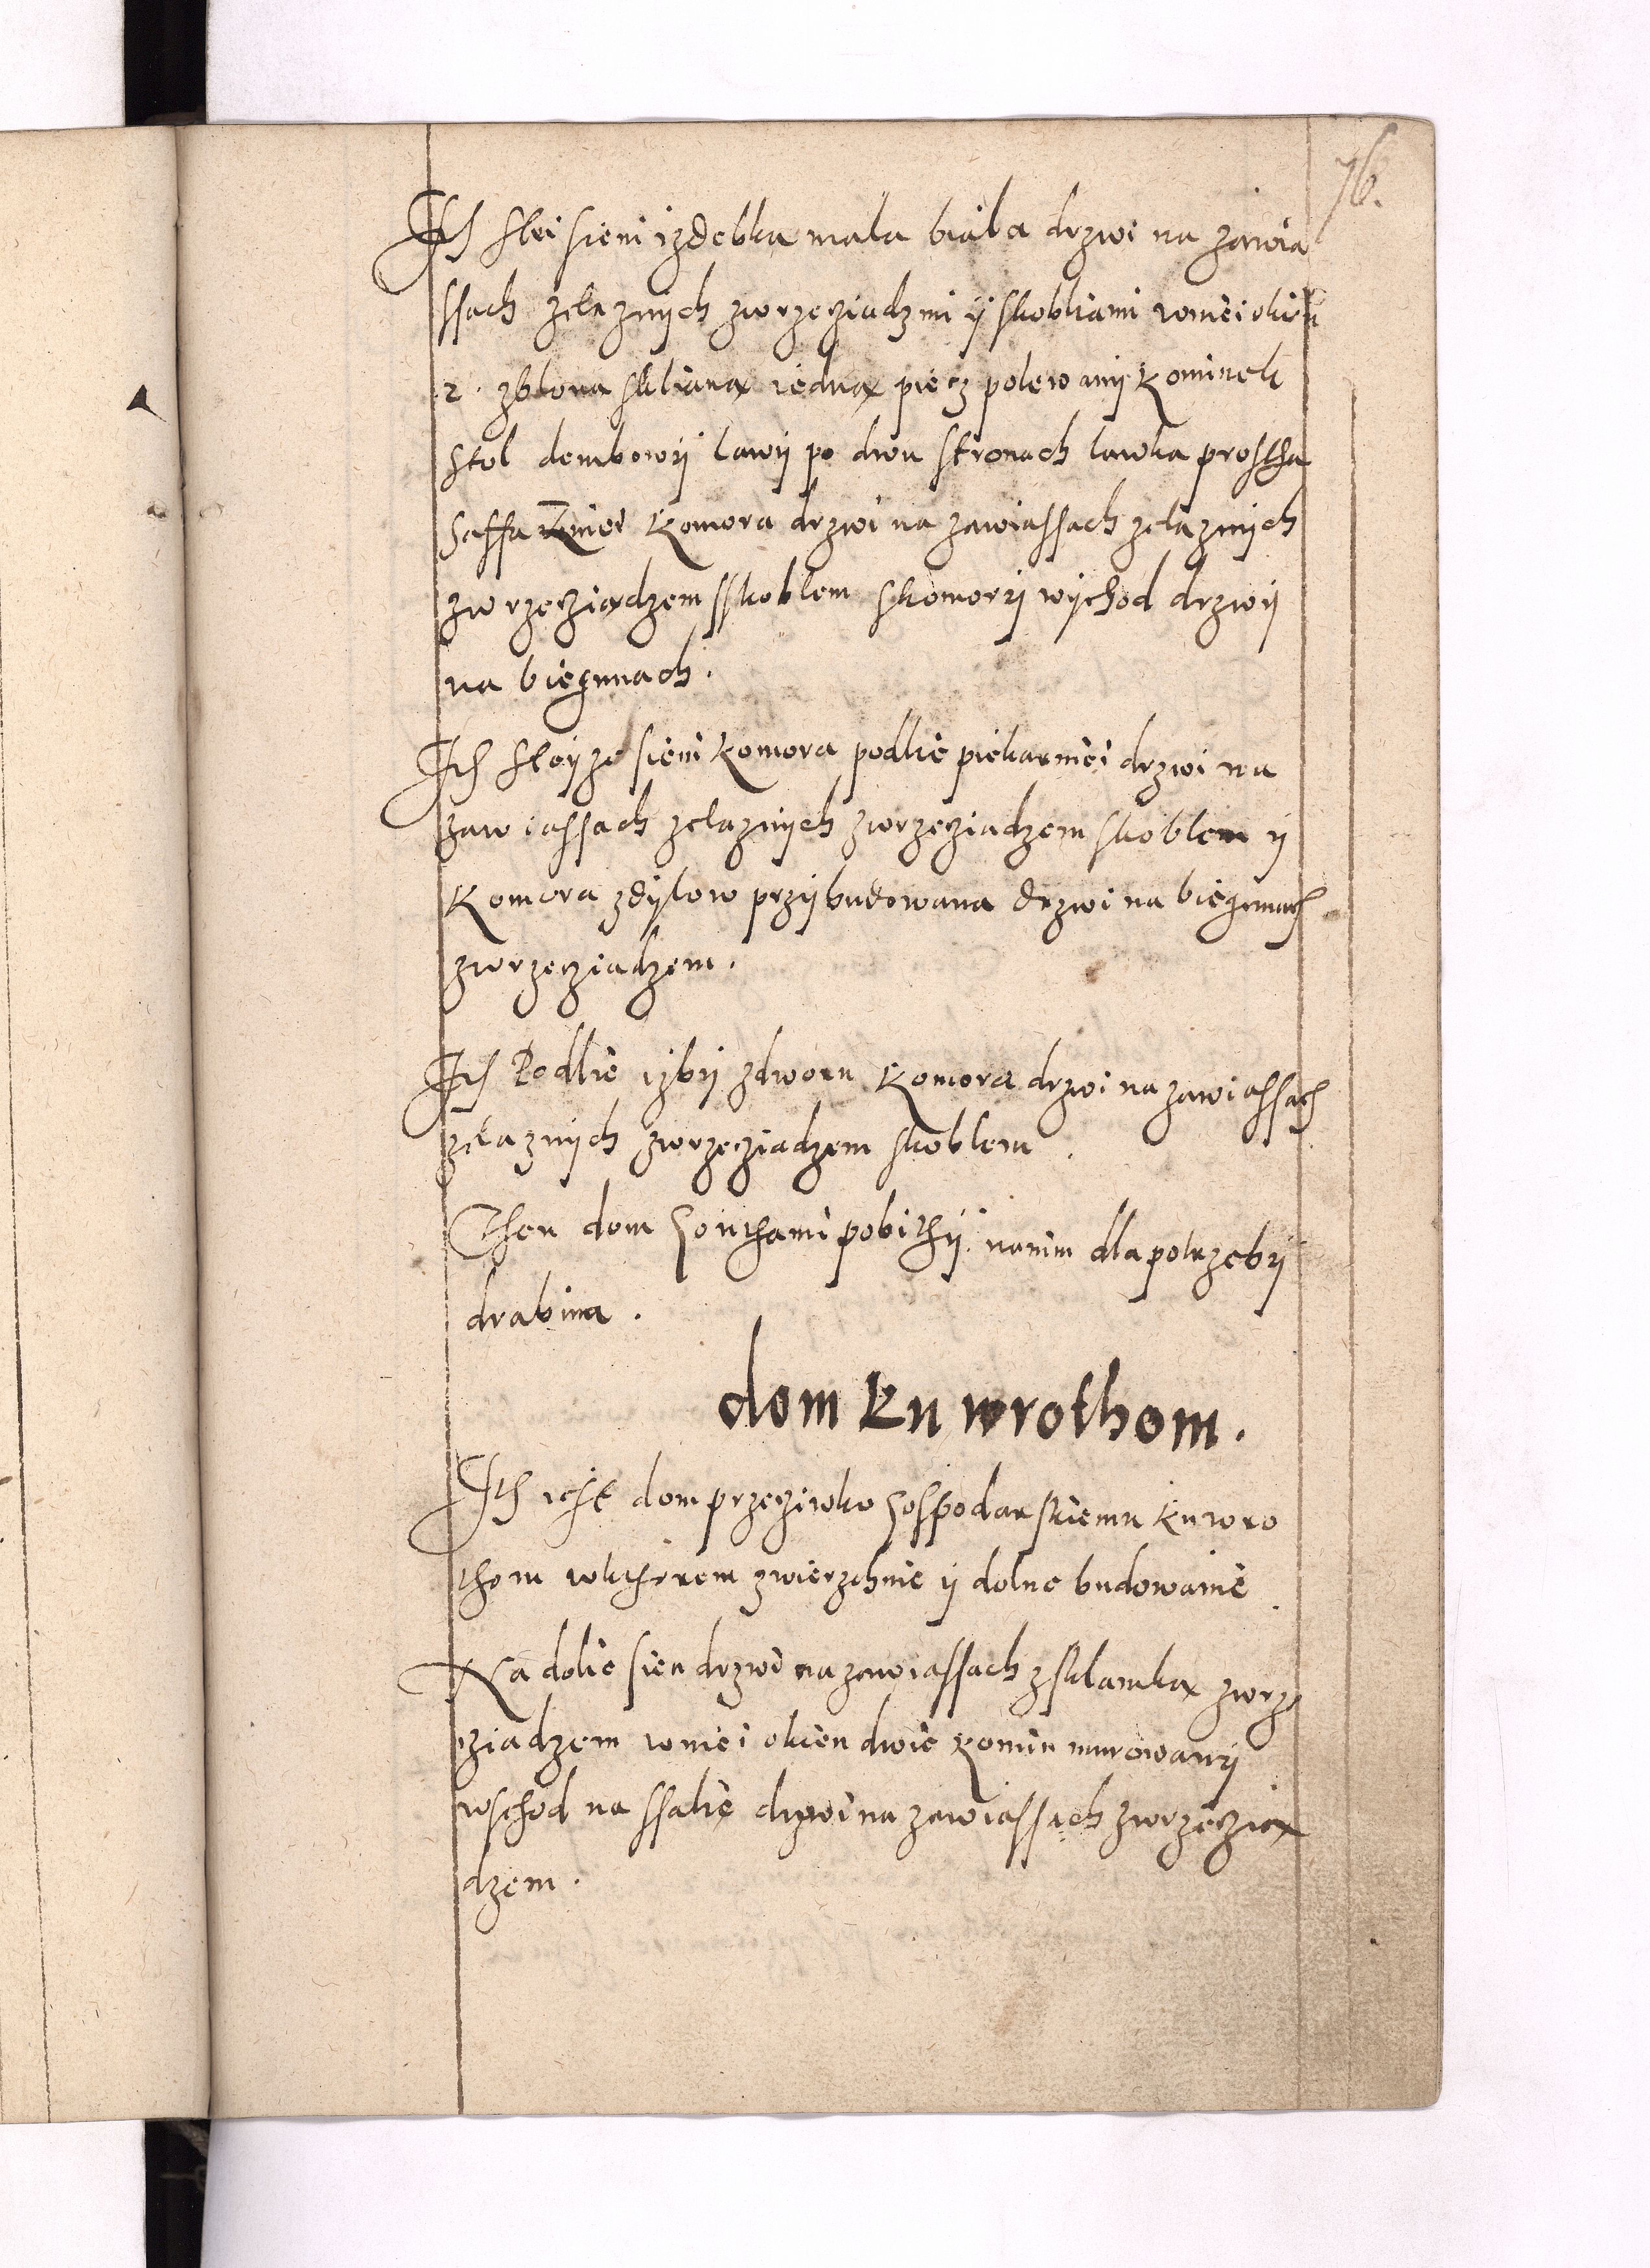 76.
Ith sthei sieni izdebka mala biala drzwi na zawia
ssach zelaznych zwrzecziadzmi y skoblami wniei okien
2. zblona skliana iedna piecz polewany kominek
Stol dembowy lawy po dwu stronach lawka prostha
Saffa Kmiei Komora drzwi na zawiassach zelaznych
zwrzecziadzem sskoblem skomory wychod drzwy
na biegunach.
Ith stoyze sieni komora podlie piekarniei drzwi na
zawiassach zelaznych zwrzecziadzem skoblem y
Komora zdylow przybudowana drzwi na biegunach
zwrzecziadzem.
Ith Podlie izby zdworu Komora drzwi na zawiassach
zelaznych zwrzecziadzem skoblem.
Then dom gonthami pobithy. nanim dla potrzeby
drabina.
dom ku wrothom.
Ith iest dom przecziwko gospodarskiemu ku wro
thom wkthorem zwierzchnie y dolne budowanie.
Na dolie sien drzwi na zawiassach zsklamka zwrze
cziadzem wniei okien dwie komin murowany
wschod na ssalie drzwi na zawiassach zwrzeczia
dzem.